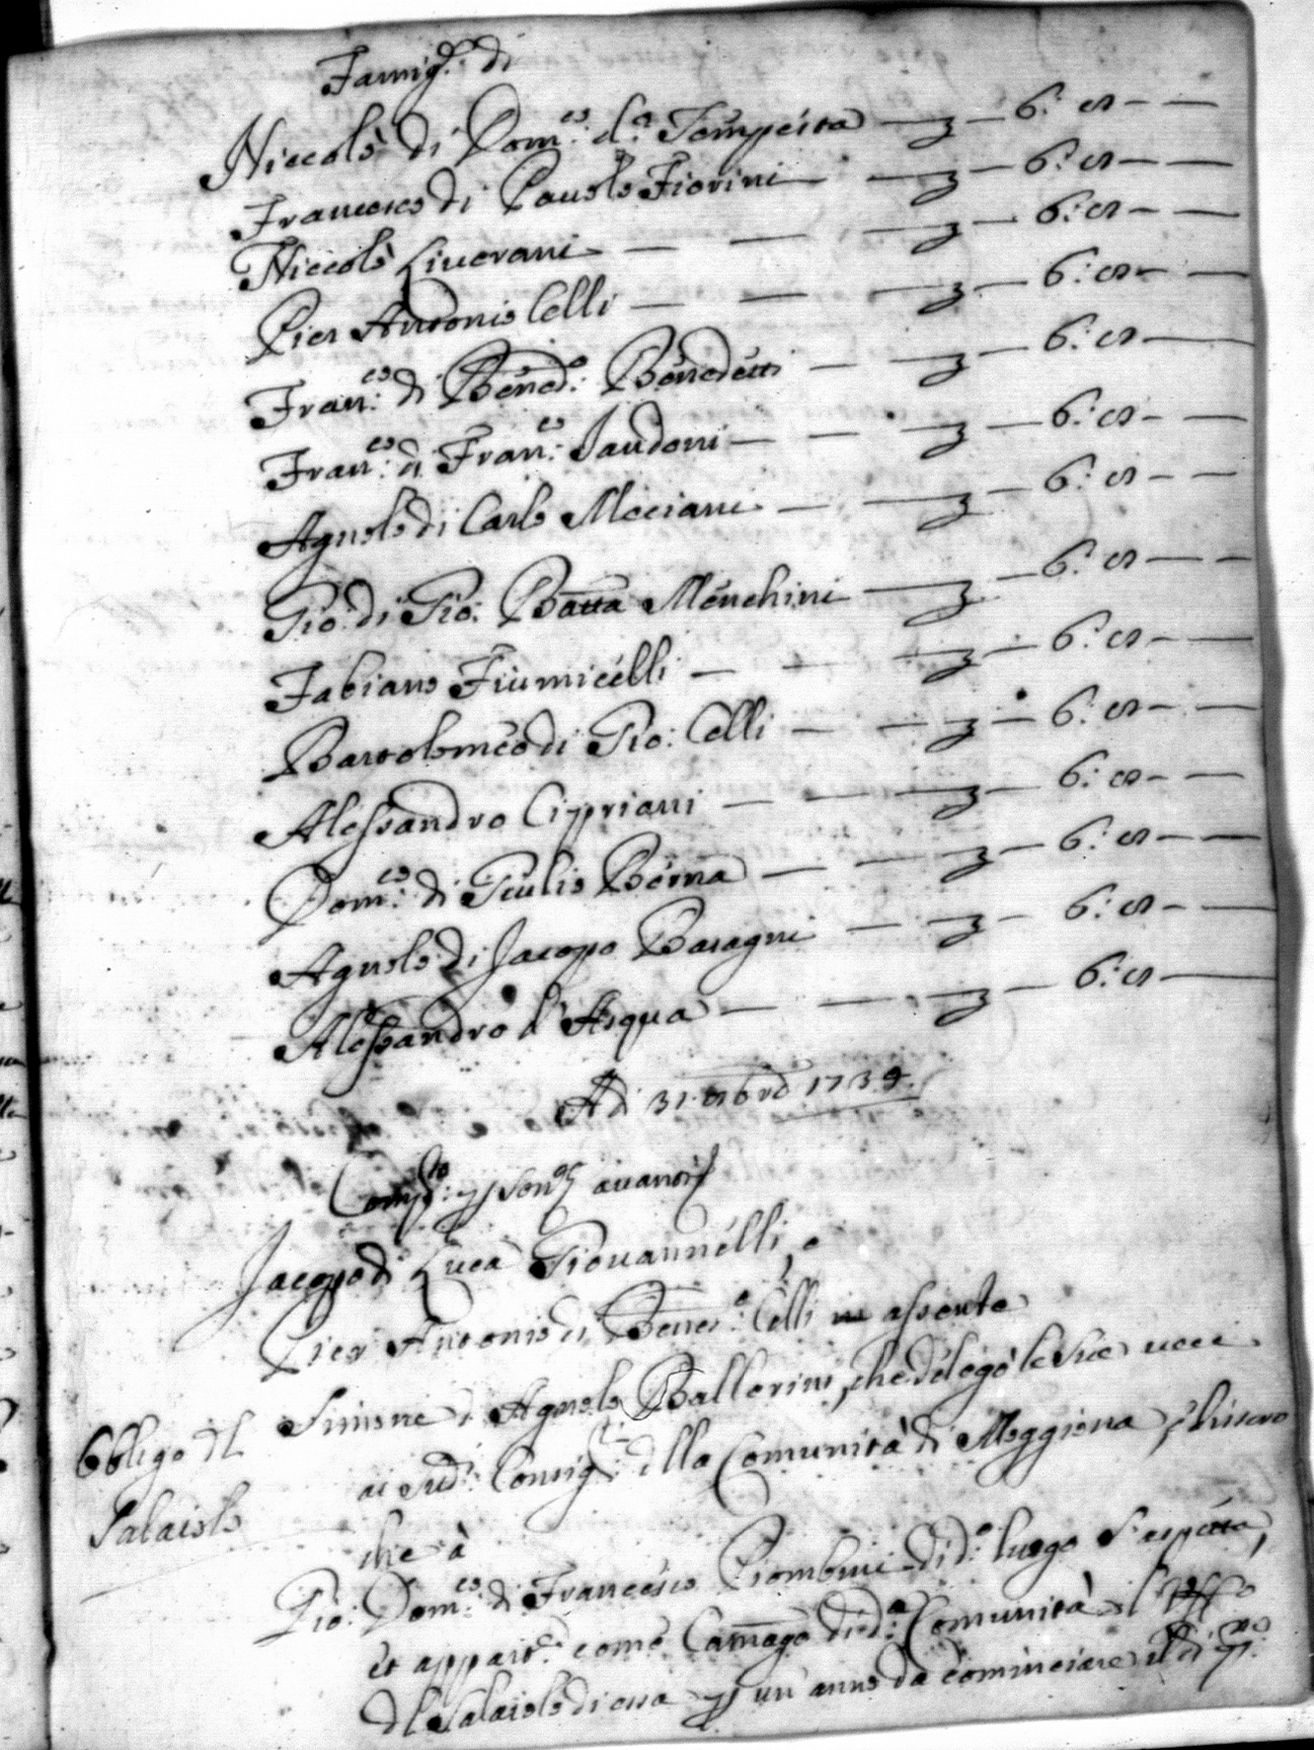 Famig.e di
Niccolò di Dom.co d.a Tempesta — z — 6: s — —
Francesco di Pauolo Fiorini — z — 6: s — —
Niccolò Liverani — — — z — 6: s — —
Pier Antonio Celli — — — z — 6: s — —
Fran.co di Bened.o Benedetti — — z — 6: s —
Fran.co di Fran.co Jandoni — — z — 6: s — —
Agnolo di Carlo Mociani — — z — 6: s — —
Gio: di Gio: Batta Menchini — z — 6: s — —
Fabiano Fiumicelli — — — z — 6: s — —
Bartolomeo di Gio: Celli — — z — 6: s — —
Alessandro Cipriani — — — z — 6: s — —
Dom.co di Giulio Berna — — z — 6: s — —
Agnolo di Jacopo Baragni — z — 6: s — —
Alessandro d'Acqua — — — z — 6: s —
Adi 31. 1739.
Comp.to avanti
Jacopo di Luca Giovannelli, e
Pier Antonio di Bened.o Celli assente
Simone d'Agnolo Ballerini, che delegò le sue veci
ai sud.i Consig.ri della Comunità di Moggiona,
Obligo del
Salaiolo
che à
Gio: Dom.co di Francesco Piombini di d.o luogo s'aspetta,
et appart.e come Camarg.o di d.a Comunità l'Uff.o
del Salaiolo di essa p un' anno da cominciare il dì p.mo